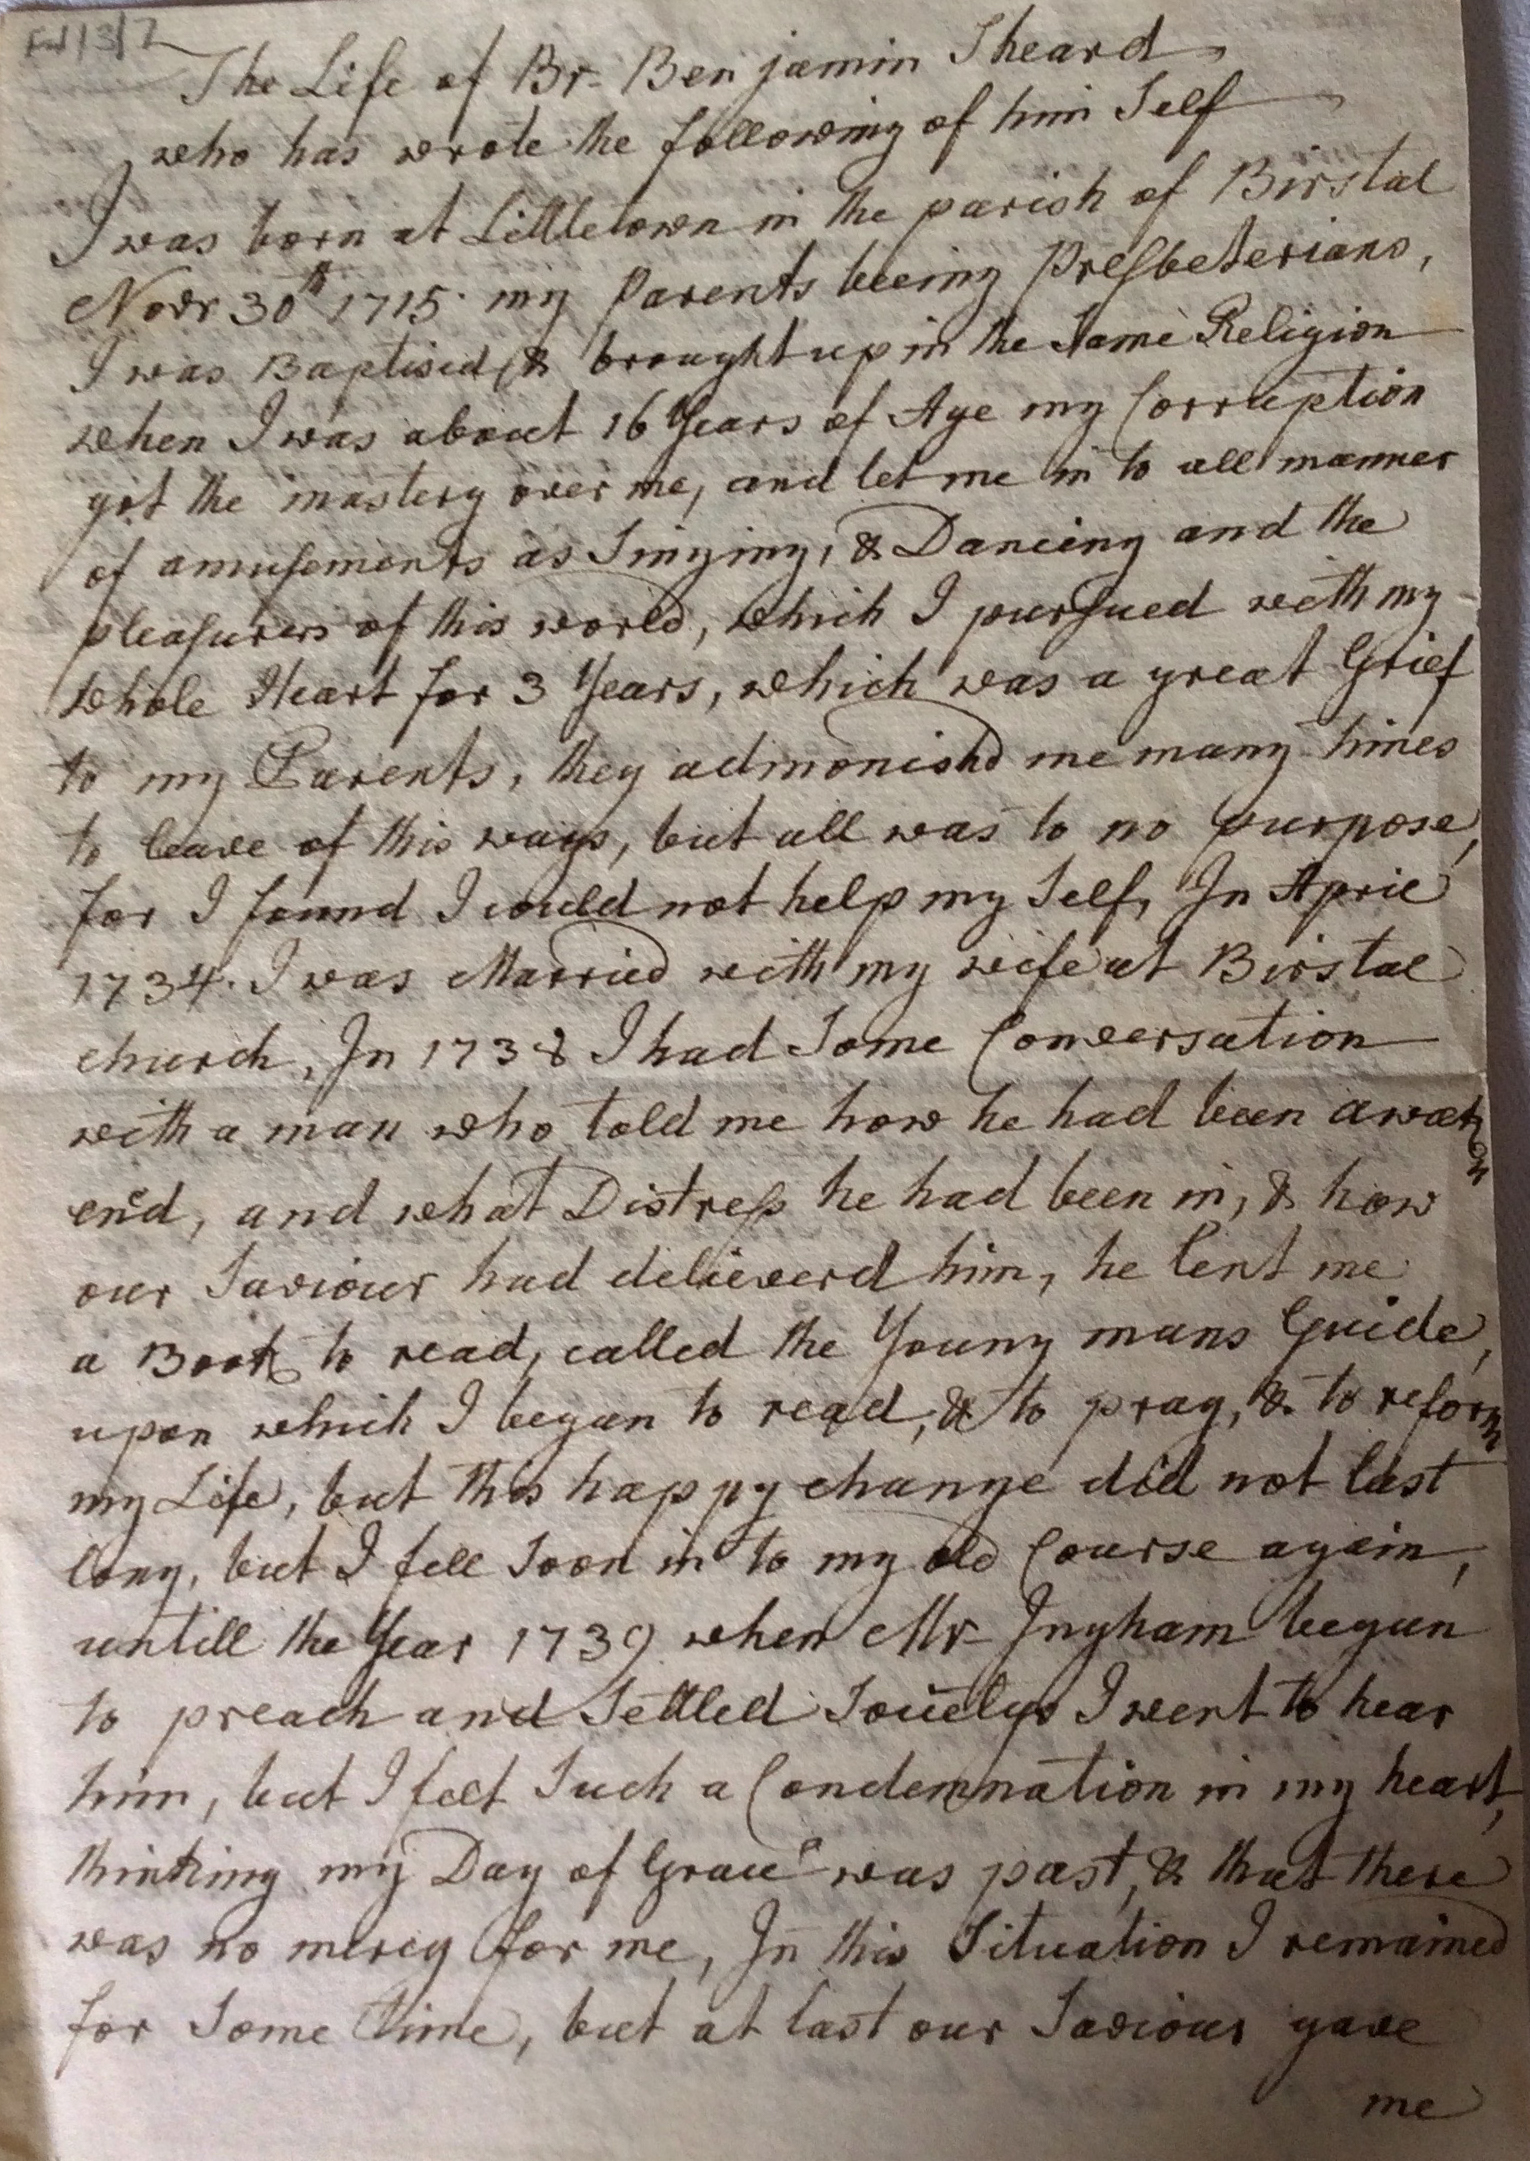 The Life of Br. Benjamin Sheard
who has wrote the following of him Self
I was born at Littletown in the parish of Birstal
Novr 30th 1715. my Parents being Presbeterians,
I was Baptised, & brought up in the Same Religion
when I was about 16 Years of Age my Corruption
got the mastery over me, and let me in to all manner
of amusements as Singing, & Dancing and the
pleasurers of this world, which I pursued with my
whole Heart for 3 Years, which was a great Grief
to my Parents, they admonishd me many times
to leave of this ways, but all was to no purpose,
for I found I could not help my Self, In April
1734. I was Married with my wife at Birstal
church, In 1738 I had Some Conversation
with a man who told me how he had been awak
end, and what Distress he had been in, & how
our Saviour had delieverd him, he lent me
a Book to read, called the Young mans Guide,
upon which I began to read, & to pray, & to reform
my Life, but this happy change did not last
long, but I fell Soon in to my old Course again,
untill the Year 1739 when Mr Ingham begun
to preach and Settled Socielys I went to hear
him, but I felt Such a Condemnation in my heart,
thinking my Day of Grace was past, & that there
was no mercy for me, In this Situation I remained
for Some time, but at last our Saviour gave
me